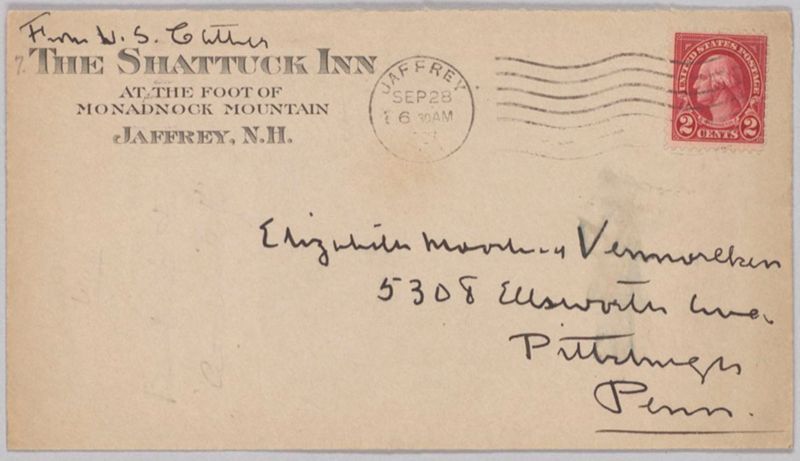 From W. S. Cather
THE SHATTUCK INN
AT THE FOOT OF
MONADNOCK MOUNTAIN
JAFFREY, N.H.
JAFFREY
SEP 28
6 30 AM
UNITED STATES POSTAGE
2 CENTS 2
Elizabeth Moorhead Vermorcken
5308 Ellsworth Ave.
Pittsburgh
Penn.